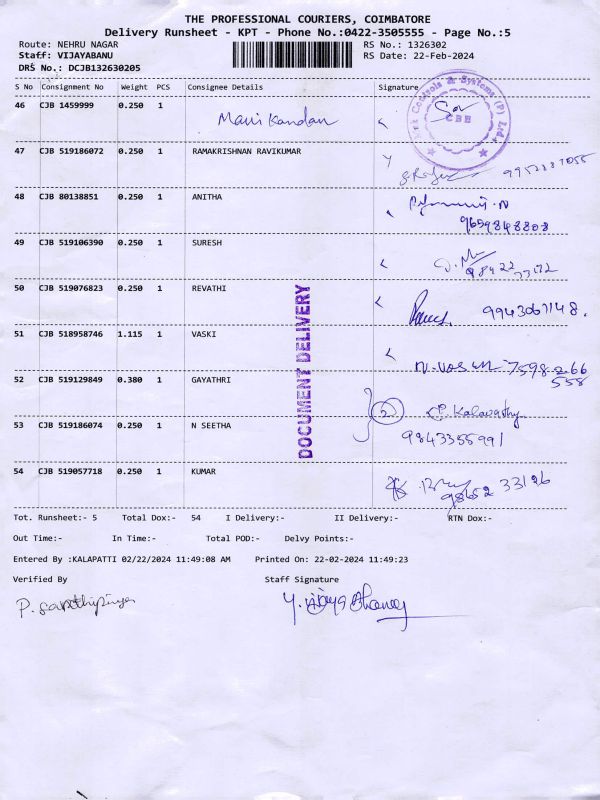 THE PROFESSIONAL COURIERS, COIMBATORE
Delivery Runsheet - KPT - Phone No.:0422-3505555 - Page No.:5
Route: NEHRU NAGAR RS No.: 1326302
Staff: VIJAYABANU RS Date: 22-Feb-2024
DRS No.: DCJB132630205
S No Consignment No Weight PCS Consignee Details Signature
46 CJB 1459999 0.250 1 Manikandan
Controls & Systems (P) Ltd.
CBE
47 CJB 519186072 0.250 1 RAMAKRISHNAN RAVIKUMAR
48 CJB 80138851 0.250 1 ANITHA
9659848808
49 CJB 519106390 0.250 1 SURESH
50 CJB 519076823 0.250 1 REVATHI
9943067148.
51 CJB 518958746 1.115 1 VASKI
7598266
558
52 CJB 519129849 0.380 1 GAYATHRI
2 P. Kalavathy
53 CJB 519186074 0.250 1 N SEETHA
9843355991
54 CJB 519057718 0.250 1 KUMAR
98652 33126
DOCUMENT DELIVERY
Tot. Runsheet:- 5 Total Dox:- 54 I Delivery:- II Delivery:- RTN Dox:-
Out Time:- In Time:- Total POD:- Delvy Points:-
Entered By :KALAPATTI 02/22/2024 11:49:08 AM Printed On: 22-02-2024 11:49:23
Verified By Staff Signature